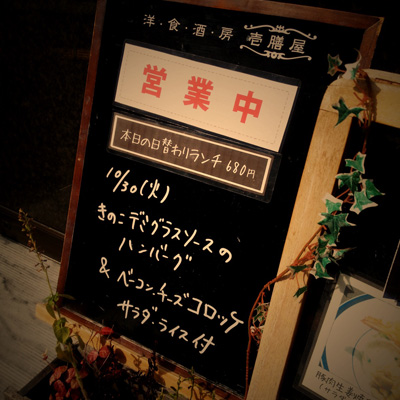 洋・食・酒・房 壱膳屋
営業中
本日の日替わりランチ 680円
10/30(火)
きのこデミグラスソースの
ハンバーグ
& ベーコン・チーズコロッケ
サラダ・ライス付